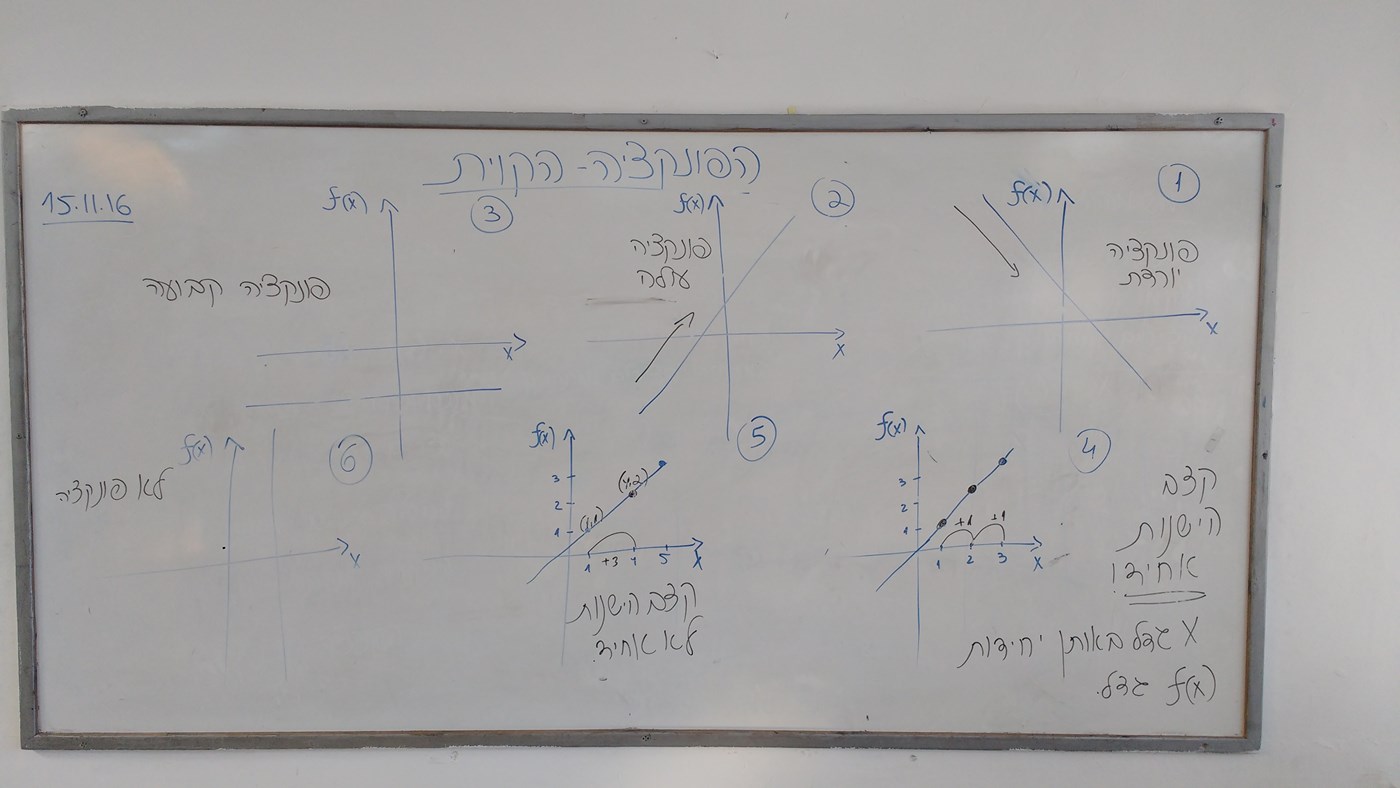 הפונקציה - הקוית
15.11.16
①
f(x)
פונקציה
יורדת
x
②
f(x)
פונקציה
עולה
x
③
f(x)
פונקציה קבועה
x
④
f(x)
3
2
1
+1 +1
1 2 3 x
קצב
הישנות
אחיד!
X גדל באותן יחידות
f(x) גדל.
⑤
f(x)
3
2
1
(1,1)
+3
1 4 5 x
קצב הישנות
לא אחיד.
⑥
f(x)
לא פונקציה
x